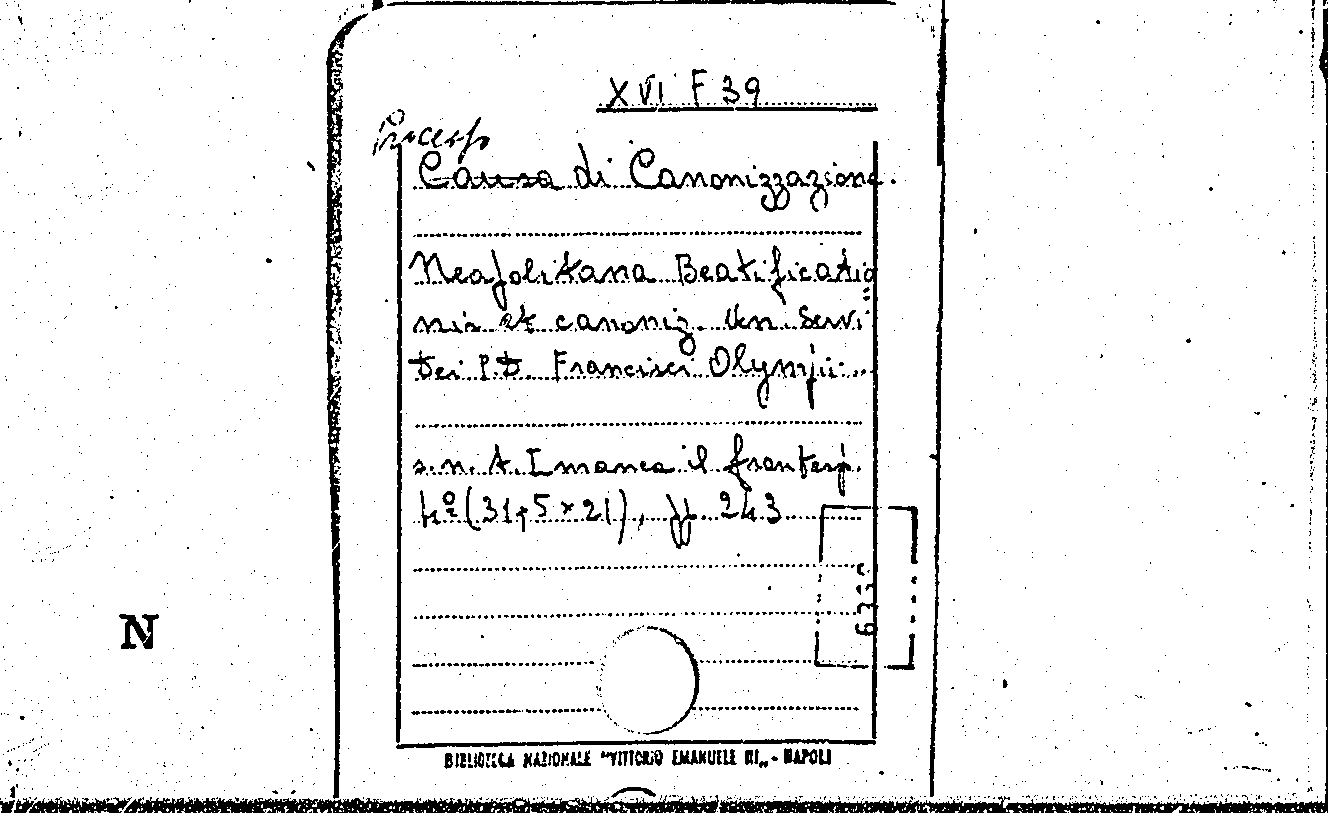 XVI F 39
Processo
Causa di Canonizzazione.
Neapolitana Beatificatio
nis et canoniz. Ven. Servi
Dei P.D. Francisci Olympii...
s.n.t. I manca il frontesp.
4º (31,5 x 21), ff. 243
N
BIBLIOTECA NAZIONALE "VITTORIO EMANUELE III" - NAPOLI